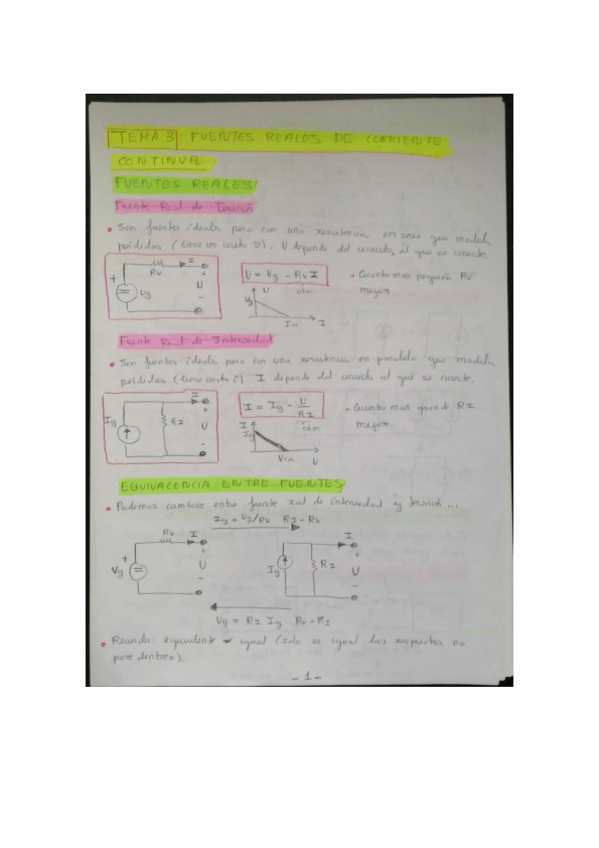 TEMA 3 FUENTES REALES DE CORRIENTE
CONTINUA
FUENTES REALES
Fuente Real de Tensión
• Son fuentes ideales pero con una resistencia en serie que modela
pérdidas (tiene un ). U depende del al que se conecte.
RV I
+ Ug U -
U = Ug - RV I
ohm
U Ug Icc I
• Cuanto mas pequeña RV
mejor.
Fuente Real de Intensidad
• Son fuentes ideales pero con una resistencia en paralelo que modela
pérdidas (tiene ) I depende del al que se conecte.
I
Ig RI + U -
I = Ig - U/RI
ohm
I Ig Vca U
• Cuanto mas grande RI
mejor.
EQUIVALENCIA ENTRE FUENTES
• Podemos cambiar entre fuente real de intensidad y tensión...
Ig = Ug/RV RI = RV
RV I I
+ Vg + U - Ig RI + U -
Vg = RI Ig RV = RI
• Recuerda: equivalente ≠ igual (solo es igual las respuestas no
por dentro).
- 1 -